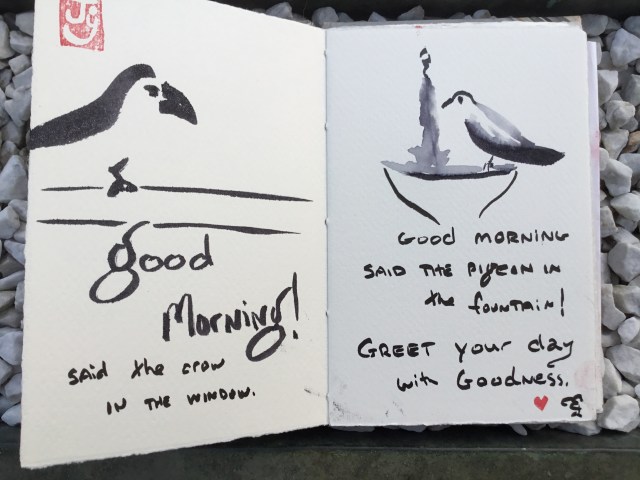 good
Morning!
said the crow
in the window.
Good morning
said the pigeon in
the fountain!
Greet your day
with Goodness.